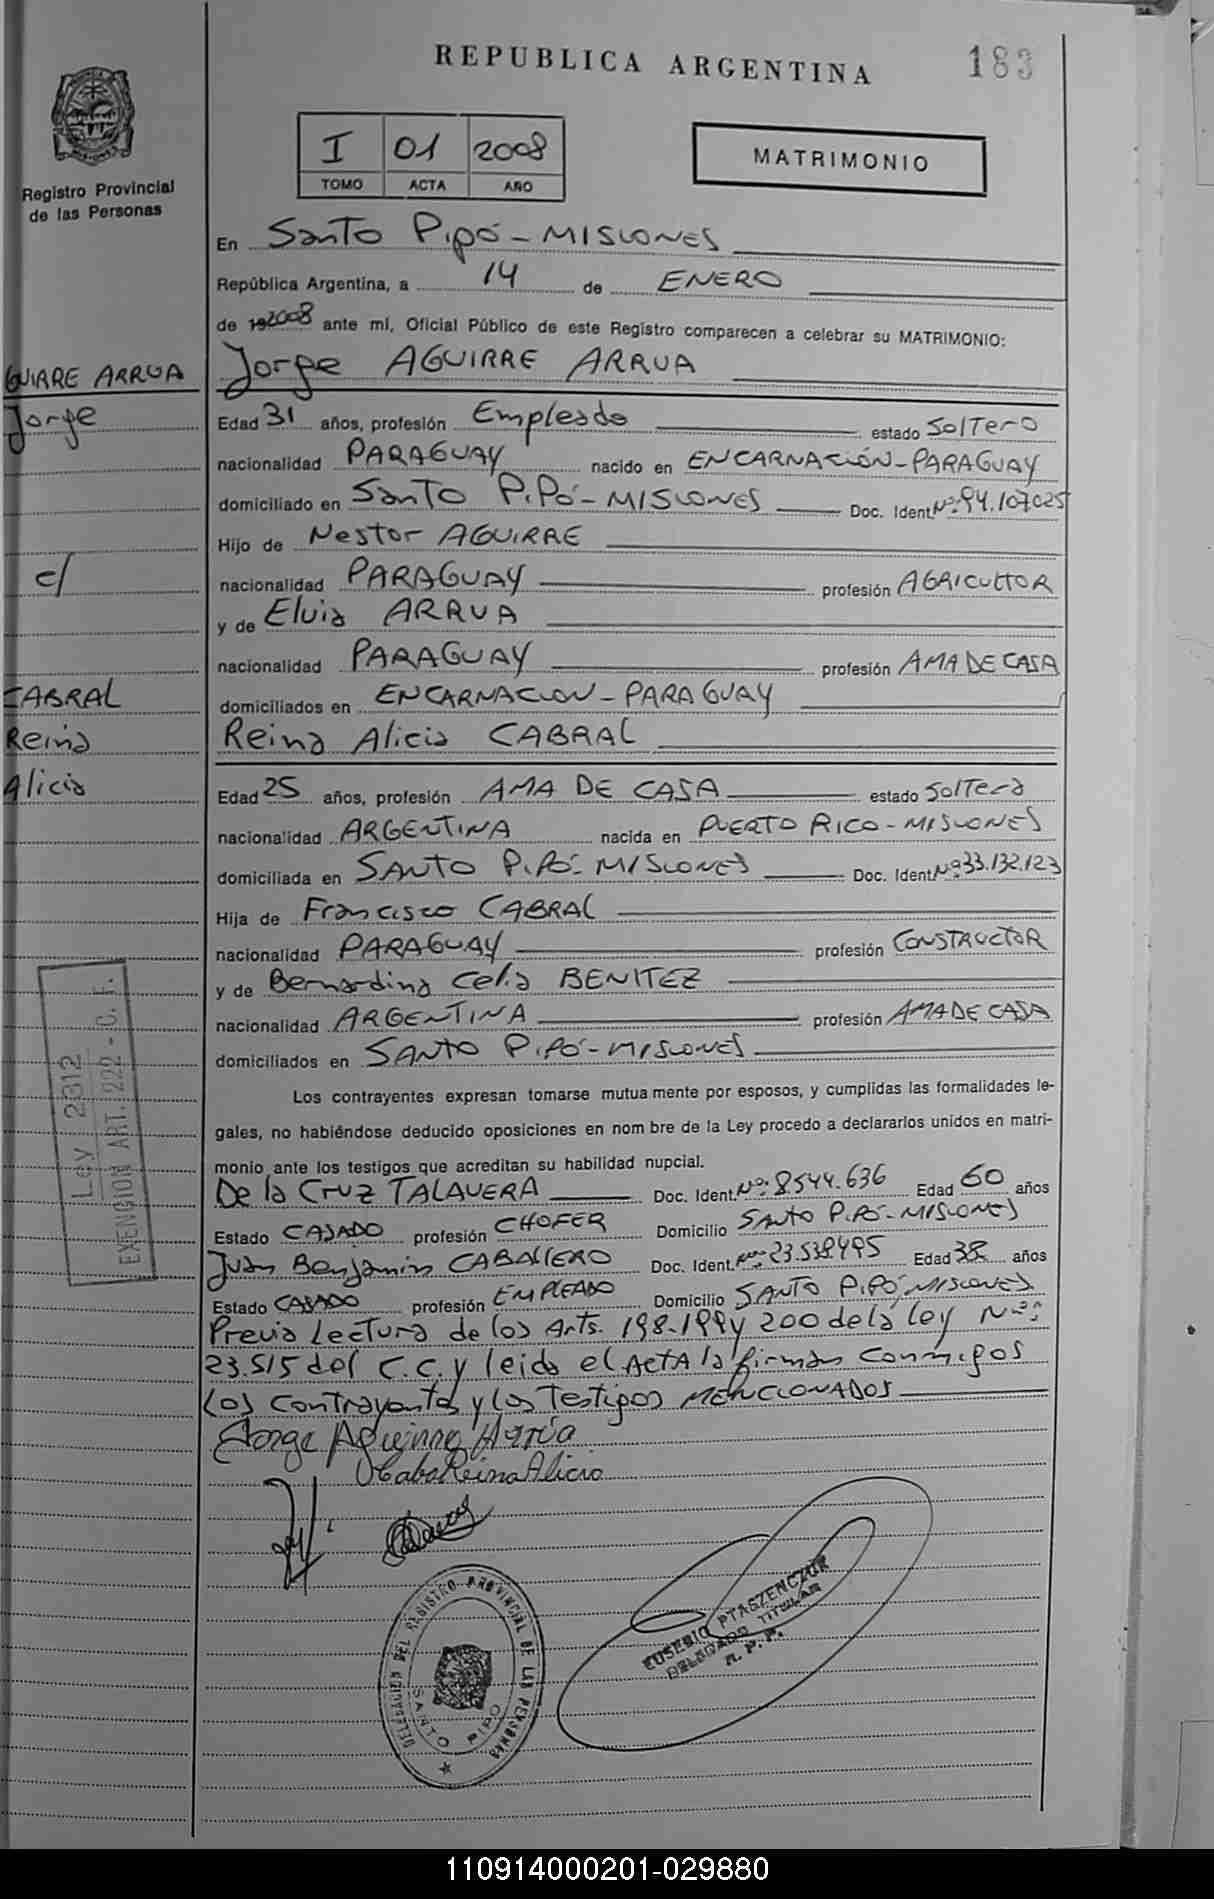 REPUBLICA ARGENTINA
183
Registro Provincial
de las Personas
I 01 2008
TOMO ACTA AÑO
MATRIMONIO
En Santo Pipó - MISIONES
República Argentina, a 14 de ENERO
de 192008 ante mí, Oficial Público de este Registro comparecen a celebrar su MATRIMONIO:
GUIRRE ARRUA
Jorge
c/
CABRAL
Reina
Alicia
Jorge AGUIRRE ARRUA
Edad 31 años, profesión Empleado estado Soltero
nacionalidad PARAGUAY nacido en ENCARNACIÓN - PARAGUAY
domiciliado en Santo Pipó - MISIONES Doc. Ident. Nº: 94.107025
Hijo de Nestor AGUIRRE
nacionalidad PARAGUAY profesión AGRICULTOR
y de Elvia ARRUA
nacionalidad PARAGUAY profesión AMA DE CASA
domiciliados en ENCARNACION - PARAGUAY
Reina Alicia CABRAL
Edad 25 años, profesión AMA DE CASA estado Soltera
nacionalidad ARGENTINA nacida en PUERTO RICO - MISIONES
domiciliada en SANTO PIPÓ - MISIONES Doc. Ident. Nº: 33.132.123
Hija de Francisco CABRAL
nacionalidad PARAGUAY profesión CONSTRUCTOR
y de Bernardina Celia BENITEZ
nacionalidad ARGENTINA profesión AMA DE CASA
domiciliados en SANTO PIPÓ - MISIONES
Los contrayentes expresan tomarse mutua mente por esposos, y cumplidas las formalidades le-
gales, no habiéndose deducido oposiciones en nom bre de la Ley procedo a declararlos unidos en matri-
monio ante los testigos que acreditan su habilidad nupcial.
De la Cruz TALAVERA Doc. Ident. Nº: 8544.636 Edad 60 años
Estado CASADO profesión CHOFER Domicilio SANTO PIPÓ - MISIONES
Juan Benjamin CABALLERO Doc. Ident. Nº: 23.538495 Edad 38 años
Estado CASADO profesión EMPLEADO Domicilio SANTO PIPÓ, MISIONES
Previa Lectura de los Arts. 198-199 y 200 de la Ley Nº:
23.515 del C.C. y leida el ActA la firman conmigos
Los contrayentes y los Testigos MENCIONADOS
Jorge Aguirre Arrúa
Reina Alicia
Ley 2312
EXENCION ART. 222 - C. F.
DELEGACION DEL REGISTRO PROVINCIAL DE LAS PERSONAS
SANTO PIPO
EUSEBIO PTASZENCZUK
DELEGADO TITULAR
R. P. P.
110914000201-029880